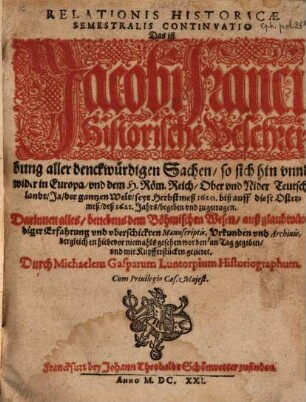 RELATIONIS HISTORICÆ
SEMESTRALIS CONTINVATIO
Das ist
Jacobi Franci
Historische Beschrei-
bung aller denckwürdigen Sachen/ so sich hin vnnd
wider in Europa/ vnd dem H. Röm. Reich/ Ober vnd Nider Teutsch
landt/ Ja/ der gantzen Welt/ seyt Herbstmeß 1620. biß auff diese Oster-
meß/ deß 1621. Jahrs/ begeben vnd zugetragen.
Darinnen alles/ benebens dem Böhmischen Wesen/ auß glaubwür-
diger Erfahrung vnd vberschickten Manuscriptis, Urkunden vnd Archivis,
dergleichen hiebevor niemahls gesehen worden/ an Tag gegeben/
vnd mit Kupfferstücken gezieret,
Durch Michaelem Gasparum Luntorpium Historiographum.
Cum Privilegio Cæs. Majest.
Franckfurt bey Johann Theobaldt Schönwetter zufinden.
ANNO M. DC. XXI.